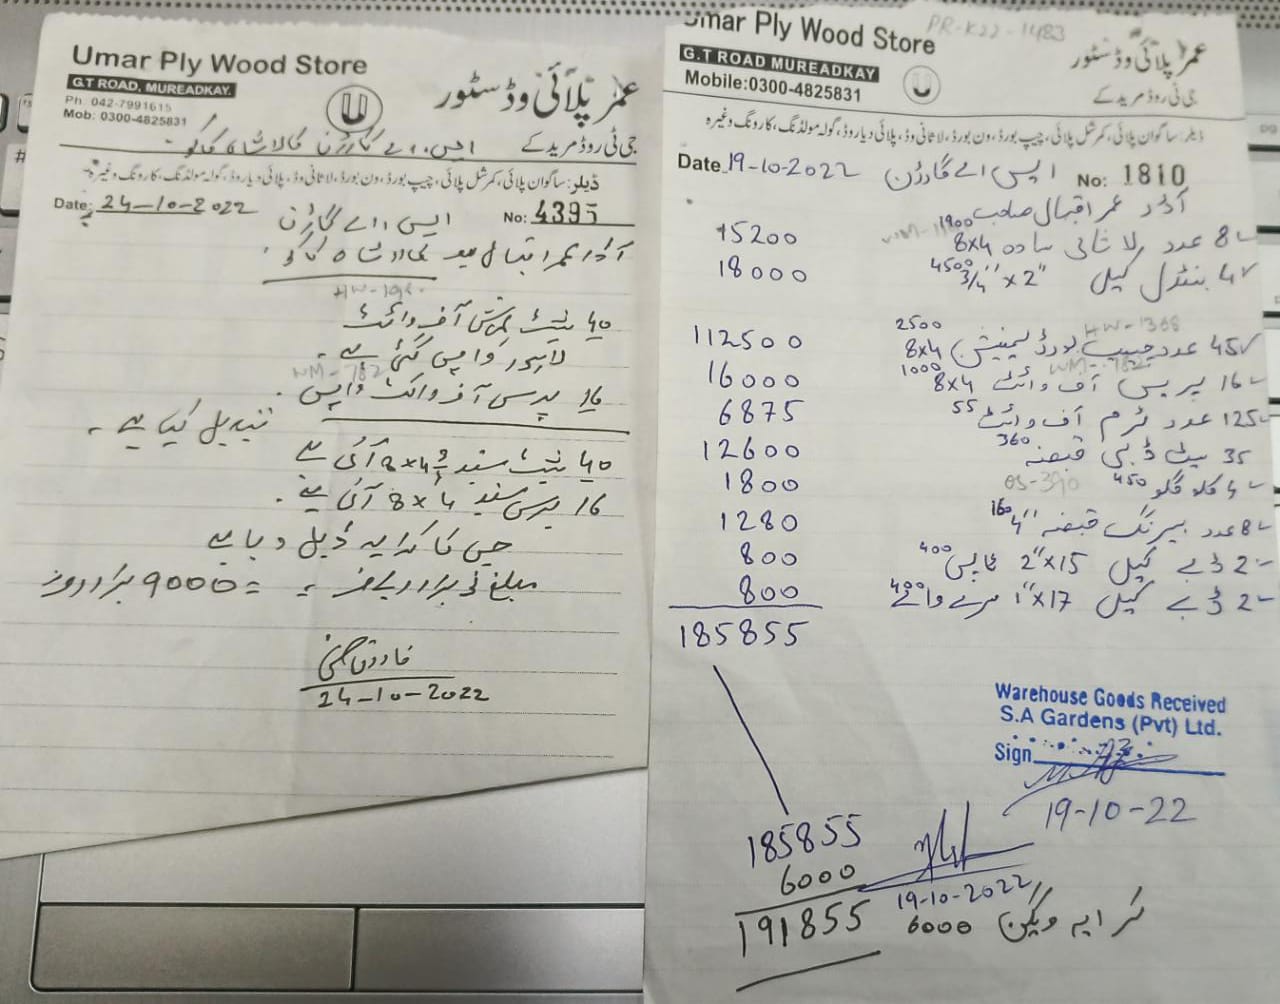 Umar Ply Wood Store
G.T ROAD, MUREADKAY.
Ph: 042-7991615
Mob: 0300-4825831
عمر پلائی وڈ سٹور
جی ٹی روڈ مرید کے
ایس، اے گارڈن کالا شاہ کاکو
ڈیلر: ساگوان پلائی، کمرشل پلائی، چیپ بورڈ، ون بورڈ، لاثانی وڈ، پلائی دیار وڈ، گولہ مولڈنگ، کارونگ وغیرہ
Date: 24-10-2022 ایس اے گارڈن No: 4395
آڈر عمر اقبال کالا شاہ کاکو
HW-198
40 شیٹ آف وائٹ
لاہور واپس گئی ہے۔
WM-782
16 پریس آف وائٹ واپس۔
تبدیل کیا ہے۔
40 شیٹ سفید 8x4 آئی ہے
16 پریس سفید 8x4 آئی ہے۔
جس کا کرایہ ڈبل دیا ہے
مبلغ نو ہزار روپے =9000 ہزار روپے
24-10-2022
Umar Ply Wood Store
PR-K22-1483
G.T ROAD MUREADKAY
Mobile:0300-4825831
عمر پلائی وڈ سٹور
جی ٹی روڈ مرید کے
ڈیلر: ساگوان پلائی، کمرشل پلائی، چیپ بورڈ، ون بورڈ، لاثانی وڈ، پلائی دیار وڈ، گولہ مولڈنگ، کارونگ وغیرہ
Date 19-10-2022 ایس اے گارڈن No: 1810
آڈر عمر اقبال صاحب
8 عدد لاثانی سادہ 8x4 1900 15200
4 بنڈل کیل 3/4" x 2" 4500 18000
HW-1368
45 عدد چیپ بورڈ لیمینیشن 8x4 2500 112500
WM-782
16 پریس آف وائٹ 8x4 1000 16000
125 عدد ٹرم آف وائٹ 55 6875
35 قبضہ 360 12600
4 کلو گلو 450 OS-390 1800
8 عدد بیرنگ قبضہ 4" 160 1280
2 ڈبے کیل 2"x15 400 800
2 ڈبے کیل 1"x17 400 800
185855
Warehouse Goods Received
S.A Gardens (Pvt) Ltd.
Sign
19-10-22
185855
6000
19-10-2022
191855
کرایہ ویگن 6000